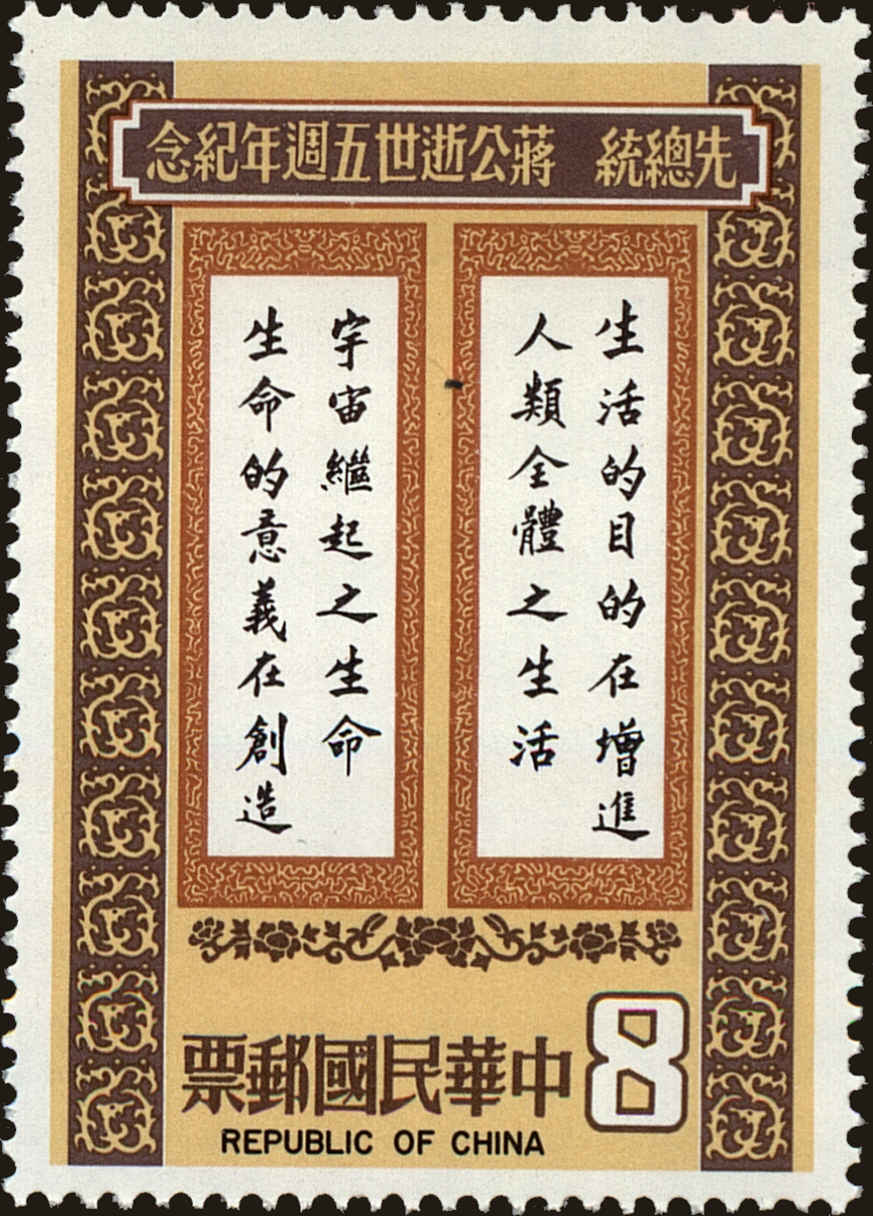 先總統 蔣公逝世五週年紀念
生活的目的在增進
人類全體之生活
宇宙繼起之生命
生命的意義在創造
8
中華民國郵票
REPUBLIC OF CHINA